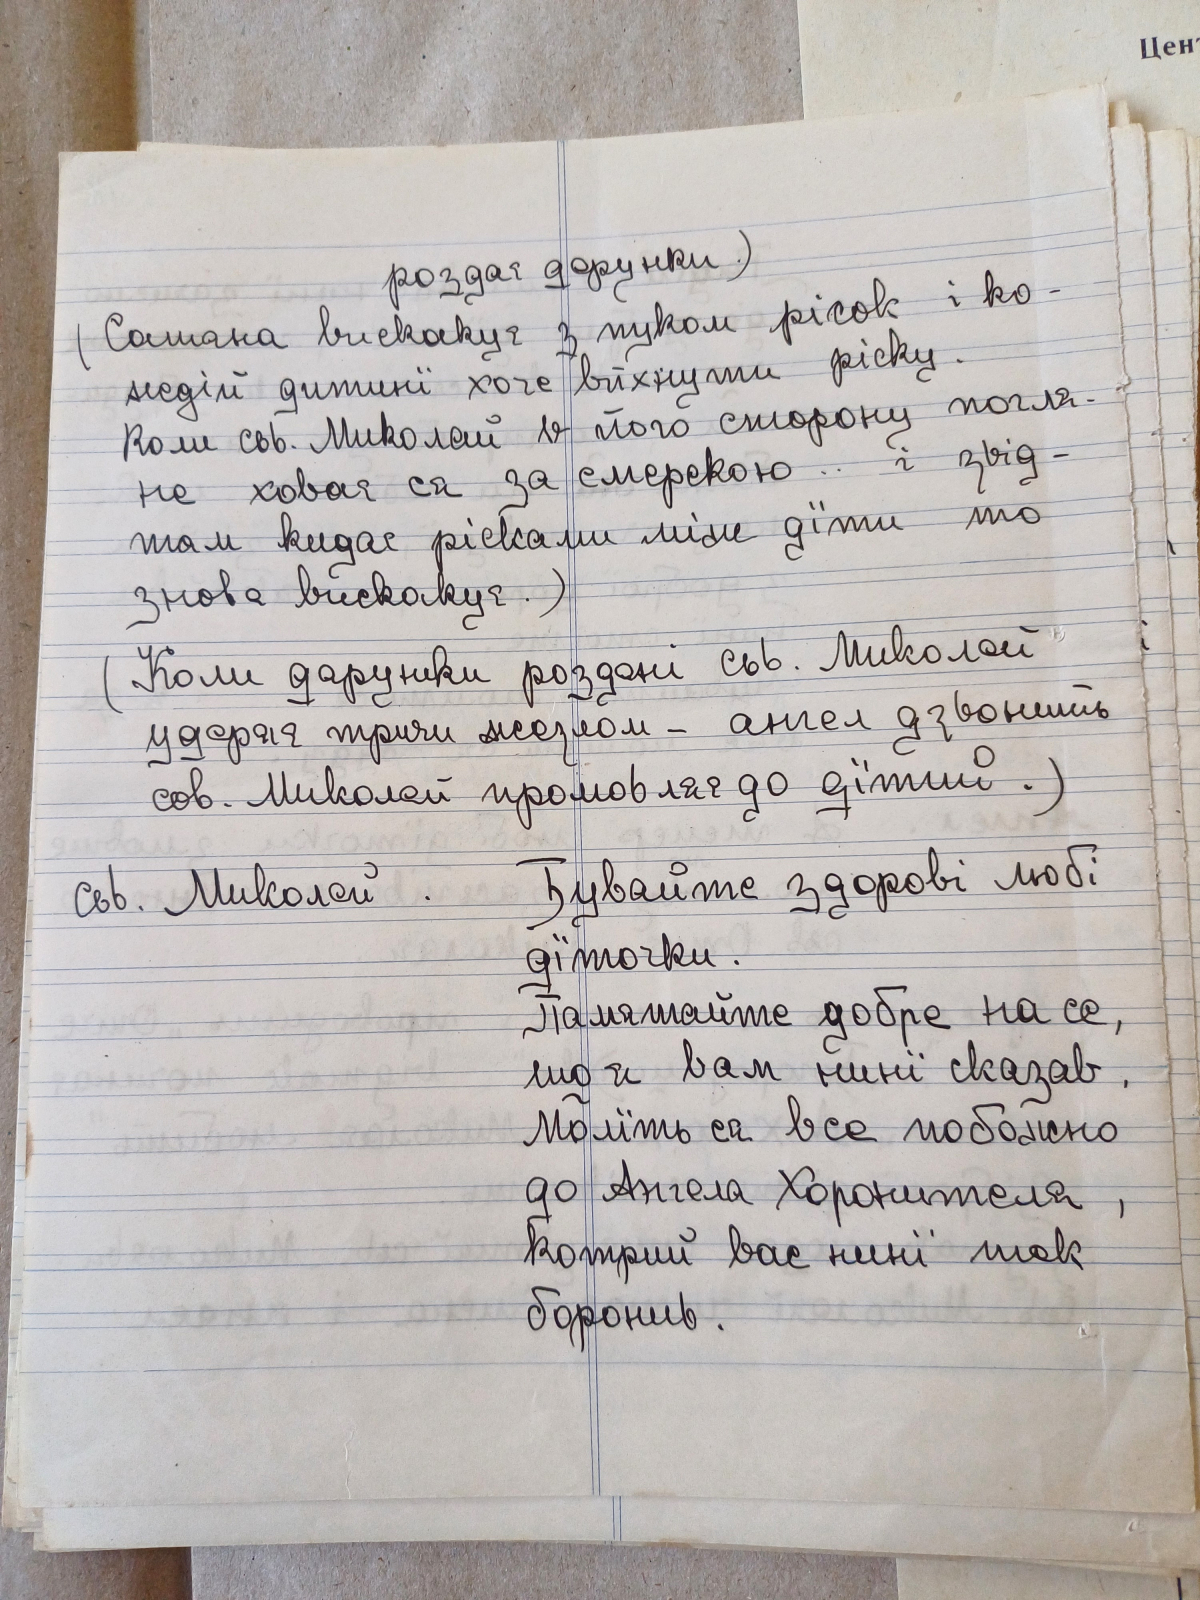 Цент
роздає дарунки.)
(Сатана вискакує з пуком рісок і ко-
ждій дитинї хоче впхнути ріску.
Коли сьв. Миколай в його сторону погля-
не ховає ся за смерекою.. і звід-
там кидає рісками між дїти то
знова вискакує.)
(Коли дарунки роздані сьв. Миколай
ударяє тричи жезлом - ангел дзвонить
сов. Миколай промовляє до дїтий.)
сьв. Миколай. Бувайте здорові любі
дїточки.
Памятайте добре на се,
що я вам нинї сказав.
Молїть ся все побожно
до Ангела Хоронителя,
котрий вас нинї так
боронив.